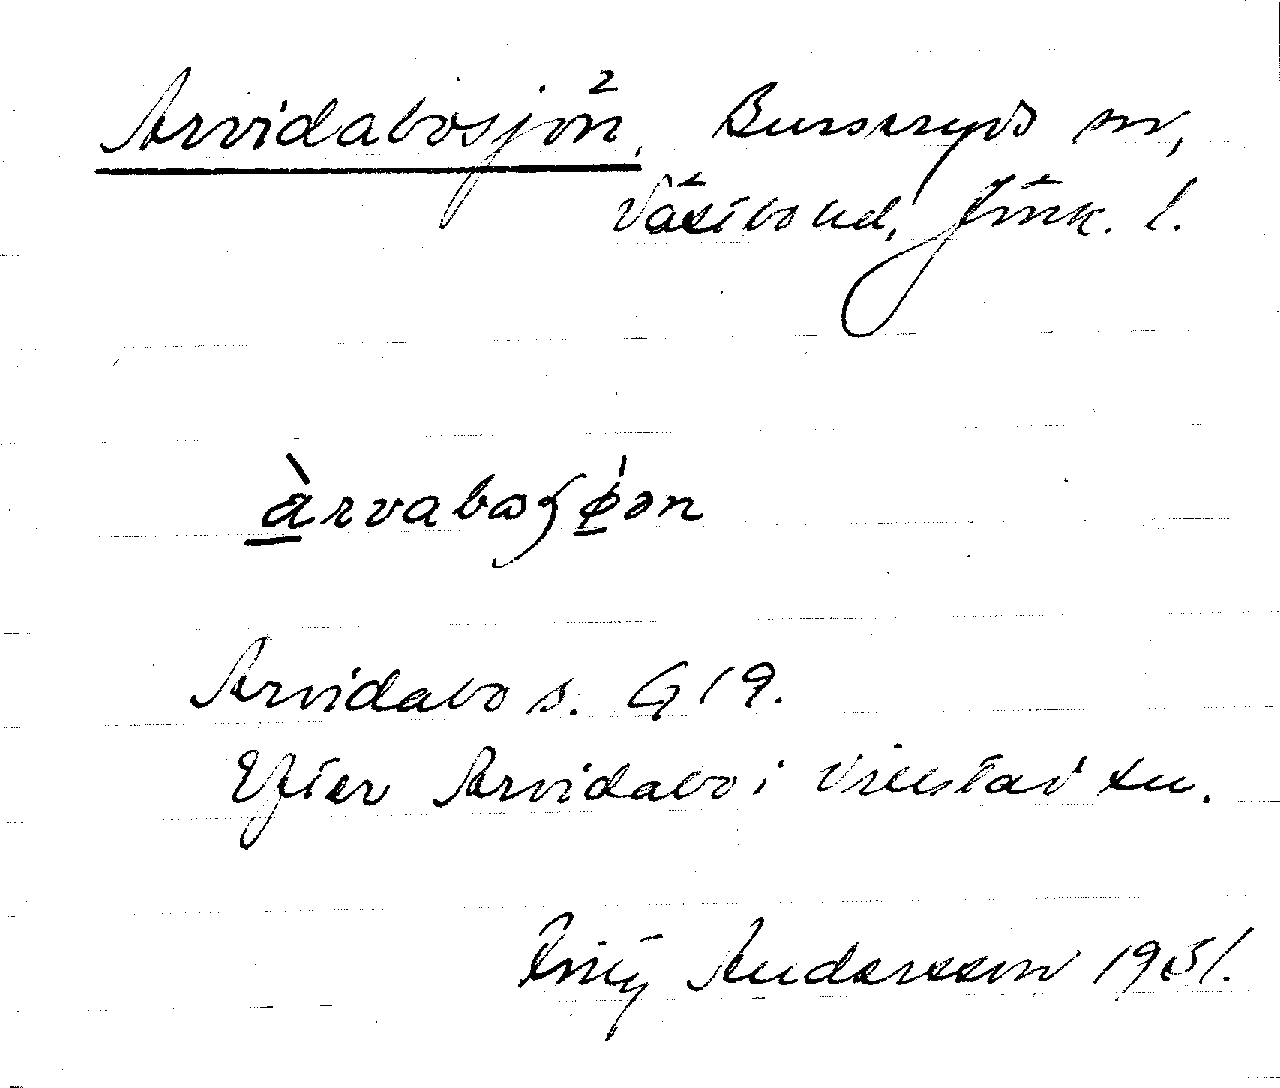 Arvidabosjön, Burseryds sn,
Västbo hd, Jönk. l.
àrvaboʃø̀ən
Arvidabo s. G 19.
Efter Arvidabo i Villstad sn.
Andersson 1951.